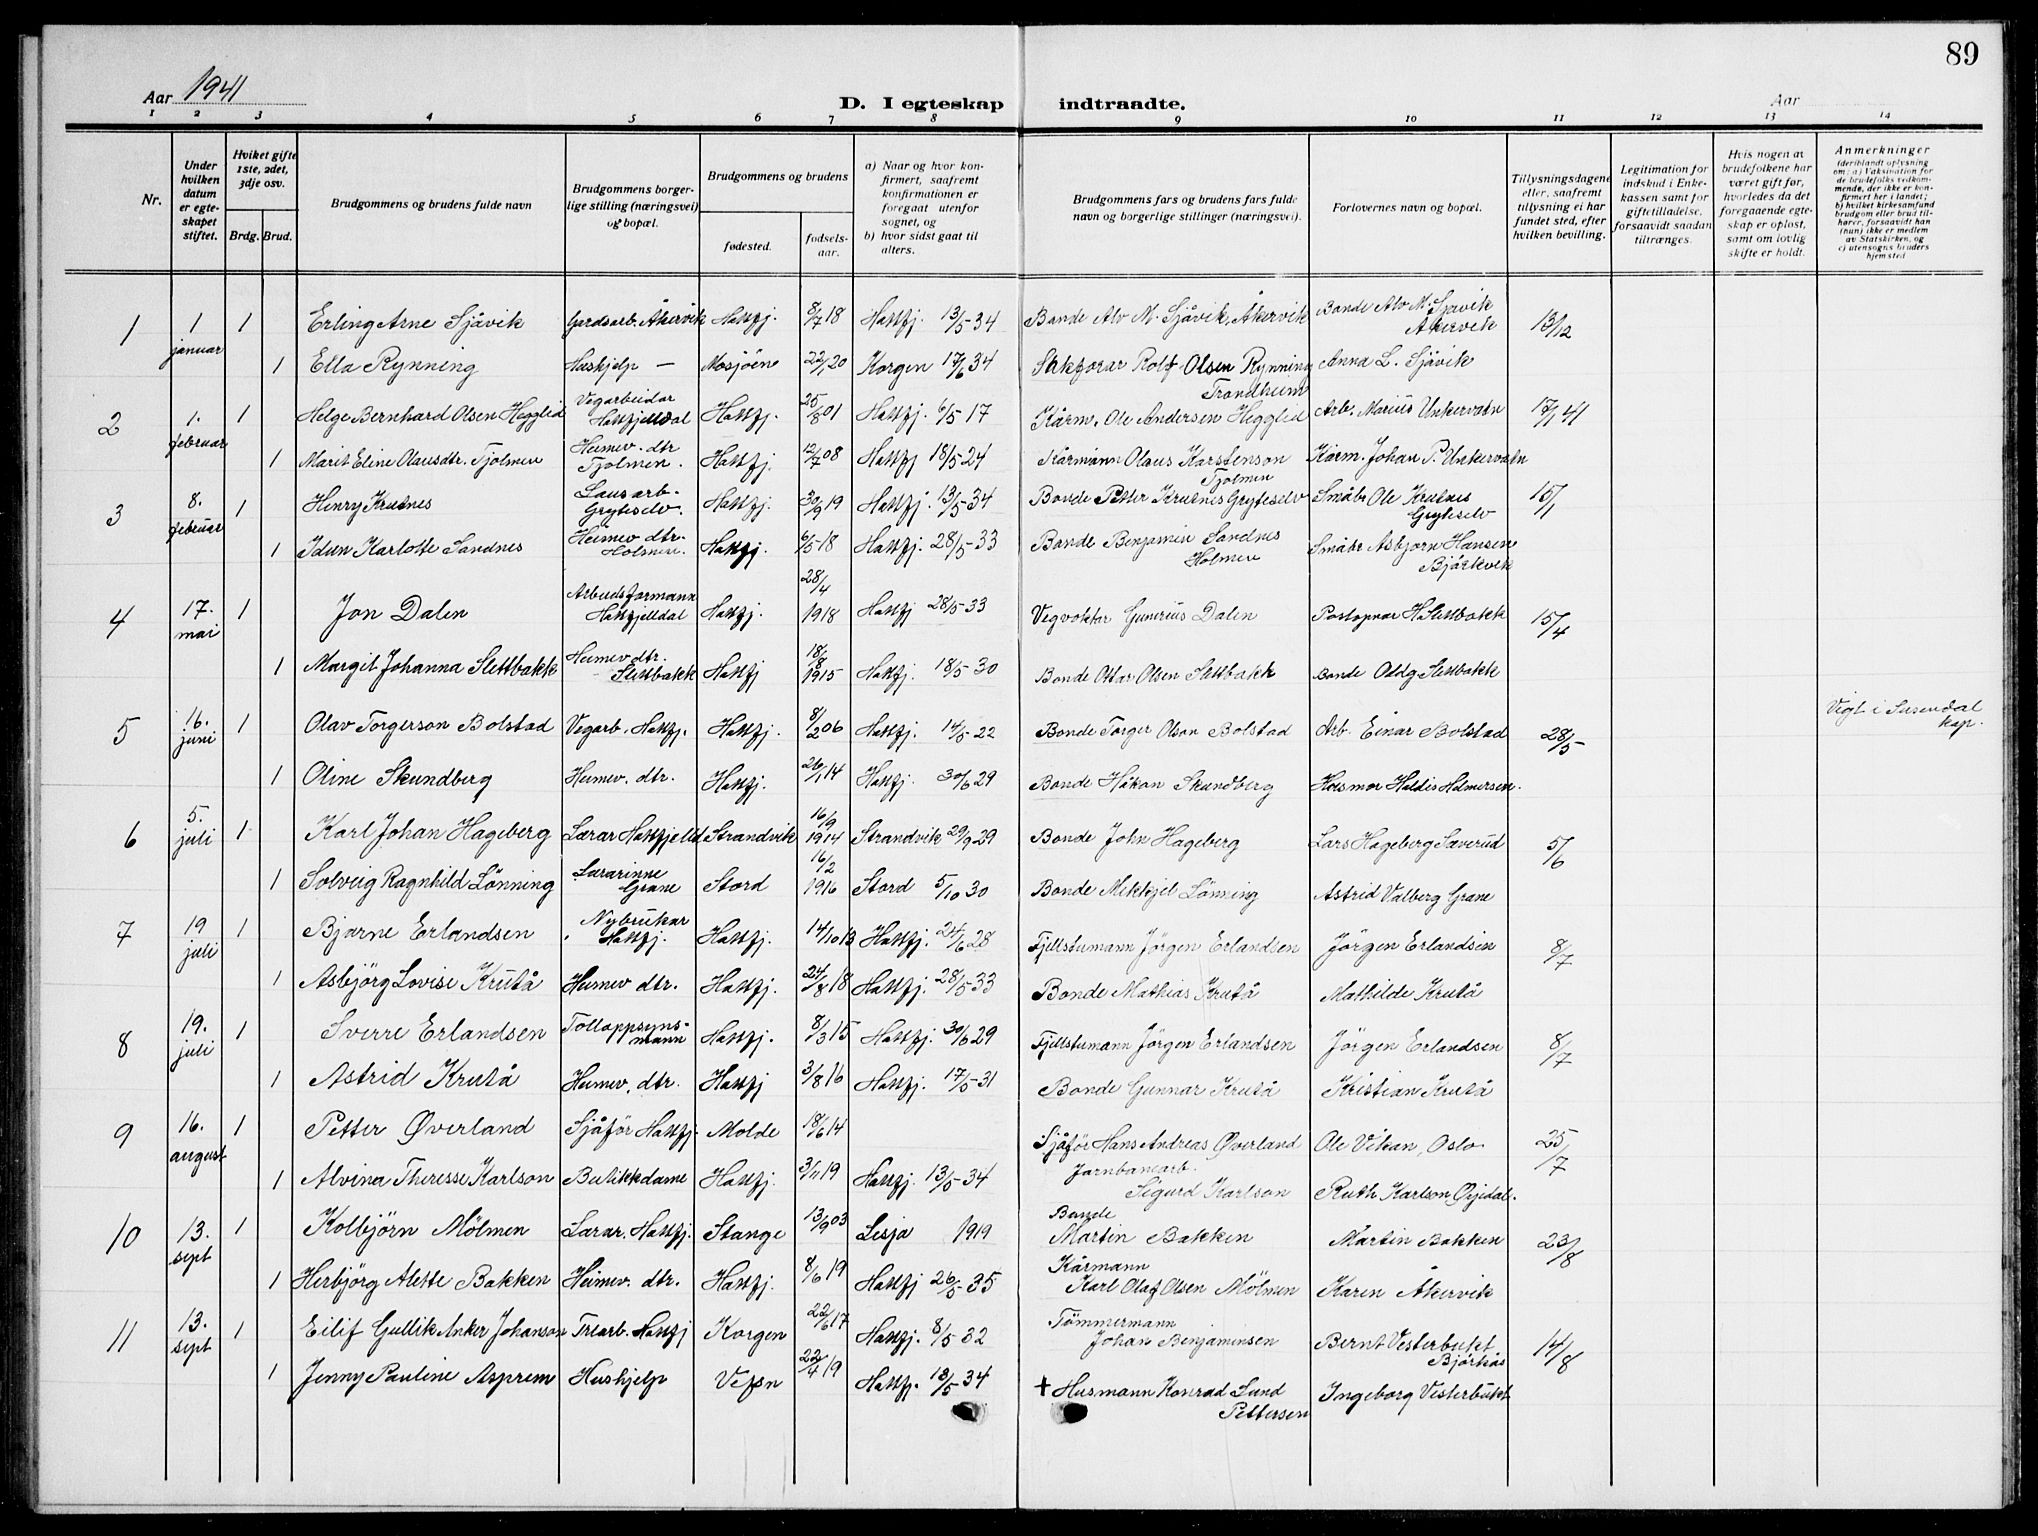 89
Aar 1941
D. I egteskap indtraadte.
Aar
1 2 3 4 5 6 7 8 9 10 11 12 13 14
Nr.
Under hvilken datum er egteskapet stiftet.
Hviket gifte 1ste, 2det, 3dje osv.
Brdg. Brud.
Brudgommens og brudens fulde navn
Brudgommens borgerlige stilling (næringsvei) og bopæl.
Brudgommens og brudens
fødested.
fødselsaar.
a) Naar og hvor konfirmert, saafremt konfirmationen er foregaat utenfor sognet, og
b) hvor sidst gaat til alters.
Brudgommens fars og brudens fars fulde navn og borgerlige stillinger (næringsvei).
Forlovernes navn og bopæl.
Tillysningsdagene eller, saafremt tillysning ei har fundet sted, efter hvilken bevilling.
Legitimation for indskud i Enkekassen samt for giftetilladelse, forsaavidt saadan tiltrænges.
Hvis nogen at brudefolkene har været gift før, hvorledes da det foregaaende egteskap er opløst, samt om lovlig skifte er holdt.
Anmerkninger
(deriblandt oplysning om: a) Vaksination for de brudefolks vedkommende, der ikke er konfirmert her i landet; b) hvilket kirkesamfund brudgom eller brud tilhører, forsaavidt han (hun) ikke er medlem av Statskirken, og c) utensogns bruders hjemsted
1 1 januar 1 Erling Arne Sjåvik Gardsarb. Åkervik Hattfj. 8/7 18 Hattfj. 13/5-34 Bonde Alv M. Sjåvik, Åkervik Bonde Alv M. Sjåvik Åkervik 13/12
1 Ella Rynning Huskjelp — Mosjøen 22/1 20 Korgen 17/6 34 Sakførar Rolf Olsen Rynning Trondheim Anna L. Sjåvik
2 1. februar 1 Helge Bernhard Olsen Hegglid Vegarbeidar Hattfjelldal Hattfj. 25/8 01 Hattfj. 6/5 17 Kårm. Ole Andersen Hegglid Arb. Marius Unkervatn 17/1 41
1 Marit Eline Olausdtr. Tjolmen Heimev. dtr Tjolmen. Hattfj. 12/7 08 Hattfj 18/5-24 Kårmann Olaus Karstenson Tjolmen Kårm. Johan P. Unkervatn
3 8. februar 1 Henry Krutnes Lausarb. Gryteselv. Hattfj. 30/9 19 Hattfj. 13/5-34 Bonde Petter Krutnes Gryteselv Småbr Ole Krutnes Gryteselv 15/1
1 Idun Karlotte Sandnes Heimev dtr. Holmen. Hattfj. 6/5 18 Hattfj. 28/5-33 Bonde Benjamin Sandnes Holmen Småbr Asbjørn Hansen Bjørkvik
4 17. mai 1 Jon Dalen Arbeidsformann Hattfjelldal Hattfj. 28/4 1918 Hattfj 28/5-33 Vegvoktar Gunerius Dalen Postopnar H Slettbakk 15/4
1 Margit Johanna Slettbakk Heimev. dtr. Slettbakk Hattfj 18/8 1915 Hattfj. 18/5 30 Bonde Ottar Olsen Slettbakk Bonde Oddg Slettbakk
5 16. juni 1 Olav Torgerson Bolstad Vegarb. Hattfj. Hattfj. 8/2 06 Hattfj. 14/5-22 Bonde Torger Olson Bolstad Arb. Einar Bolstad 28/5- Vigt i Susendal kap.
1 Oline Skundberg Heimev. dtr. Hattfj. 26/1 14 Hattfj. 30/6 29 Bonde Håkon Skundberg Husmor Haldis Helmersen.
6 5. juli 1 Karl Johan Hageberg Lærar Hattfjelld Strandvik 16/9 1914 Strandvik 29/9 29 Bonde John Hageberg Lars Hageberg Sæverud 5/6
1 Solveig Ragnhild Lönning Lærarinne Grane Stord 16/2 1916 Stord 5/10 30 Bonde Mikkjel Lönning Astrid Valberg Grane
7 19 juli 1 Bjarne Erlandsen Nybrukar Hattfj. Hattfj. 14/10 13 Hattfj. 24/6 28 Fjellstumann Jörgen Erlandsen Jörgen Erlandsen 8/7
1 Asbjörg Lovise Krutå Heimev dtr. Hattfj. 24/8 18 Hattfj. 28/5 33 Bonde Mathias Krutå Mathilde Krutå
8 19. juli 1 Sverre Erlandsen Tolloppsynsmann Hattfj. 8/3 15 Hattfj. 30/6 29 Fjellstumann Jörgen Erlandsen Jörgen Erlandsen 8/7
1 Astrid Krutå Heimev. dtr. Hattfj 3/8 16 Hattfj. 17/5-31 Bonde Gunnar Krutå Kristian Krutå
9 16. august 1 Petter Øverland Sjåför Hattfj. Molde 18/6 14 Sjåför Hans Andreas Øverland Ole Vikan, Oslo 25/7
1 Alvina Theresse Karlson Butikkdame Hattfj. 3/11 19 Hattfj. 13/5-34 Jarnbanearb. Sigurd Karlson Ruth Karlson Øyjedal.
10 13. sept 1 Kolbjörn Mölmen Lærar. Hattfj. Stange 13/9 03 Lesja 1919 Bonde Martin Bakken Martin Bakken 23/8
1 Herbjörg Alette Bakken Heimev. dtr. Hattfj. 8/6 19 Hattfj 26/5-35 Kårmann Karl Olaf Olsen Mölmen Karen Åkervik
11 13. sept 1 Eilif Gullik Anker Johanson Trearb. Hattfj Korgen 22/6 17 Hattfj. 8/5-32 Tømmermann Johan Benjaminsen Bernt Vesterbukt Bjørkås 14/8
1 Jenny Pauline Asprem Hushjelp Vefsn 22/4 19 Hattfj. 13/5 34 + Husmann Konrad Lund Pettersen Ingeborg Vesterbukt